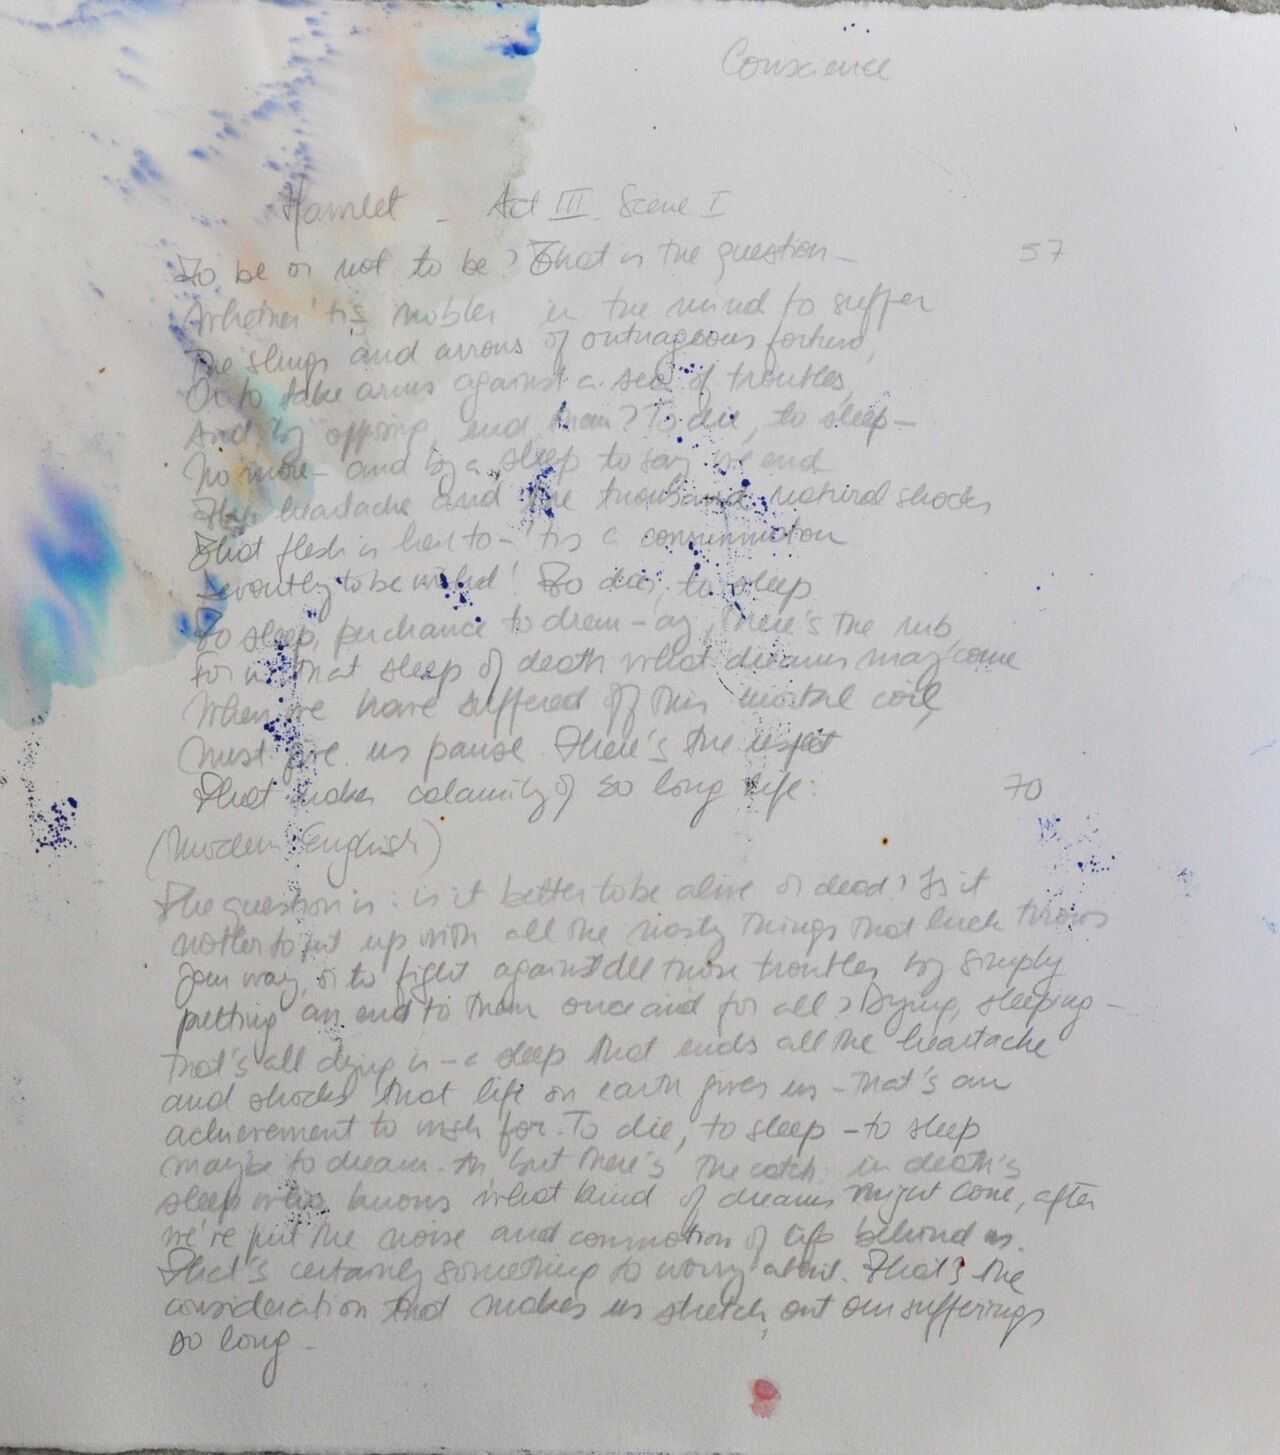 Conscience
Hamlet - Act III. Scene I
To be or not to be? That is the question — 57
Whether 'tis nobler in the mind to suffer
The slings and arrows of outrageous fortune,
Or to take arms against a sea of troubles,
And, by opposing, end them? To die, to sleep —
No more — and by a sleep to say we end
The heartache and the thousand natural shocks
That flesh is heir to — 'tis a consummation
Devoutly to be wished! To die, to sleep
To sleep, perchance to dream — ay, there's the rub,
For in that sleep of death what dreams may come
When we have suffered off this mortal coil,
Must give us pause. There's the respect
That makes calamity of so long life. 70
(Modern English)
The question is: is it better to be alive or dead? Is it
nobler to put up with all the nasty things that luck throws
your way, or to fight against all those troubles by simply
putting an end to them once and for all? Dying, sleeping —
that's all dying is — a sleep that ends all the heartache
and shocks that life on earth gives us — that's an
achievement to wish for. To die, to sleep — to sleep
maybe to dream - but there's the catch: in death's
sleep who knows what kind of dreams might come, after
we've put the noise and commotion of life behind us.
That's certainly something to worry about. That's the
consideration that makes us stretch out our sufferings
so long -